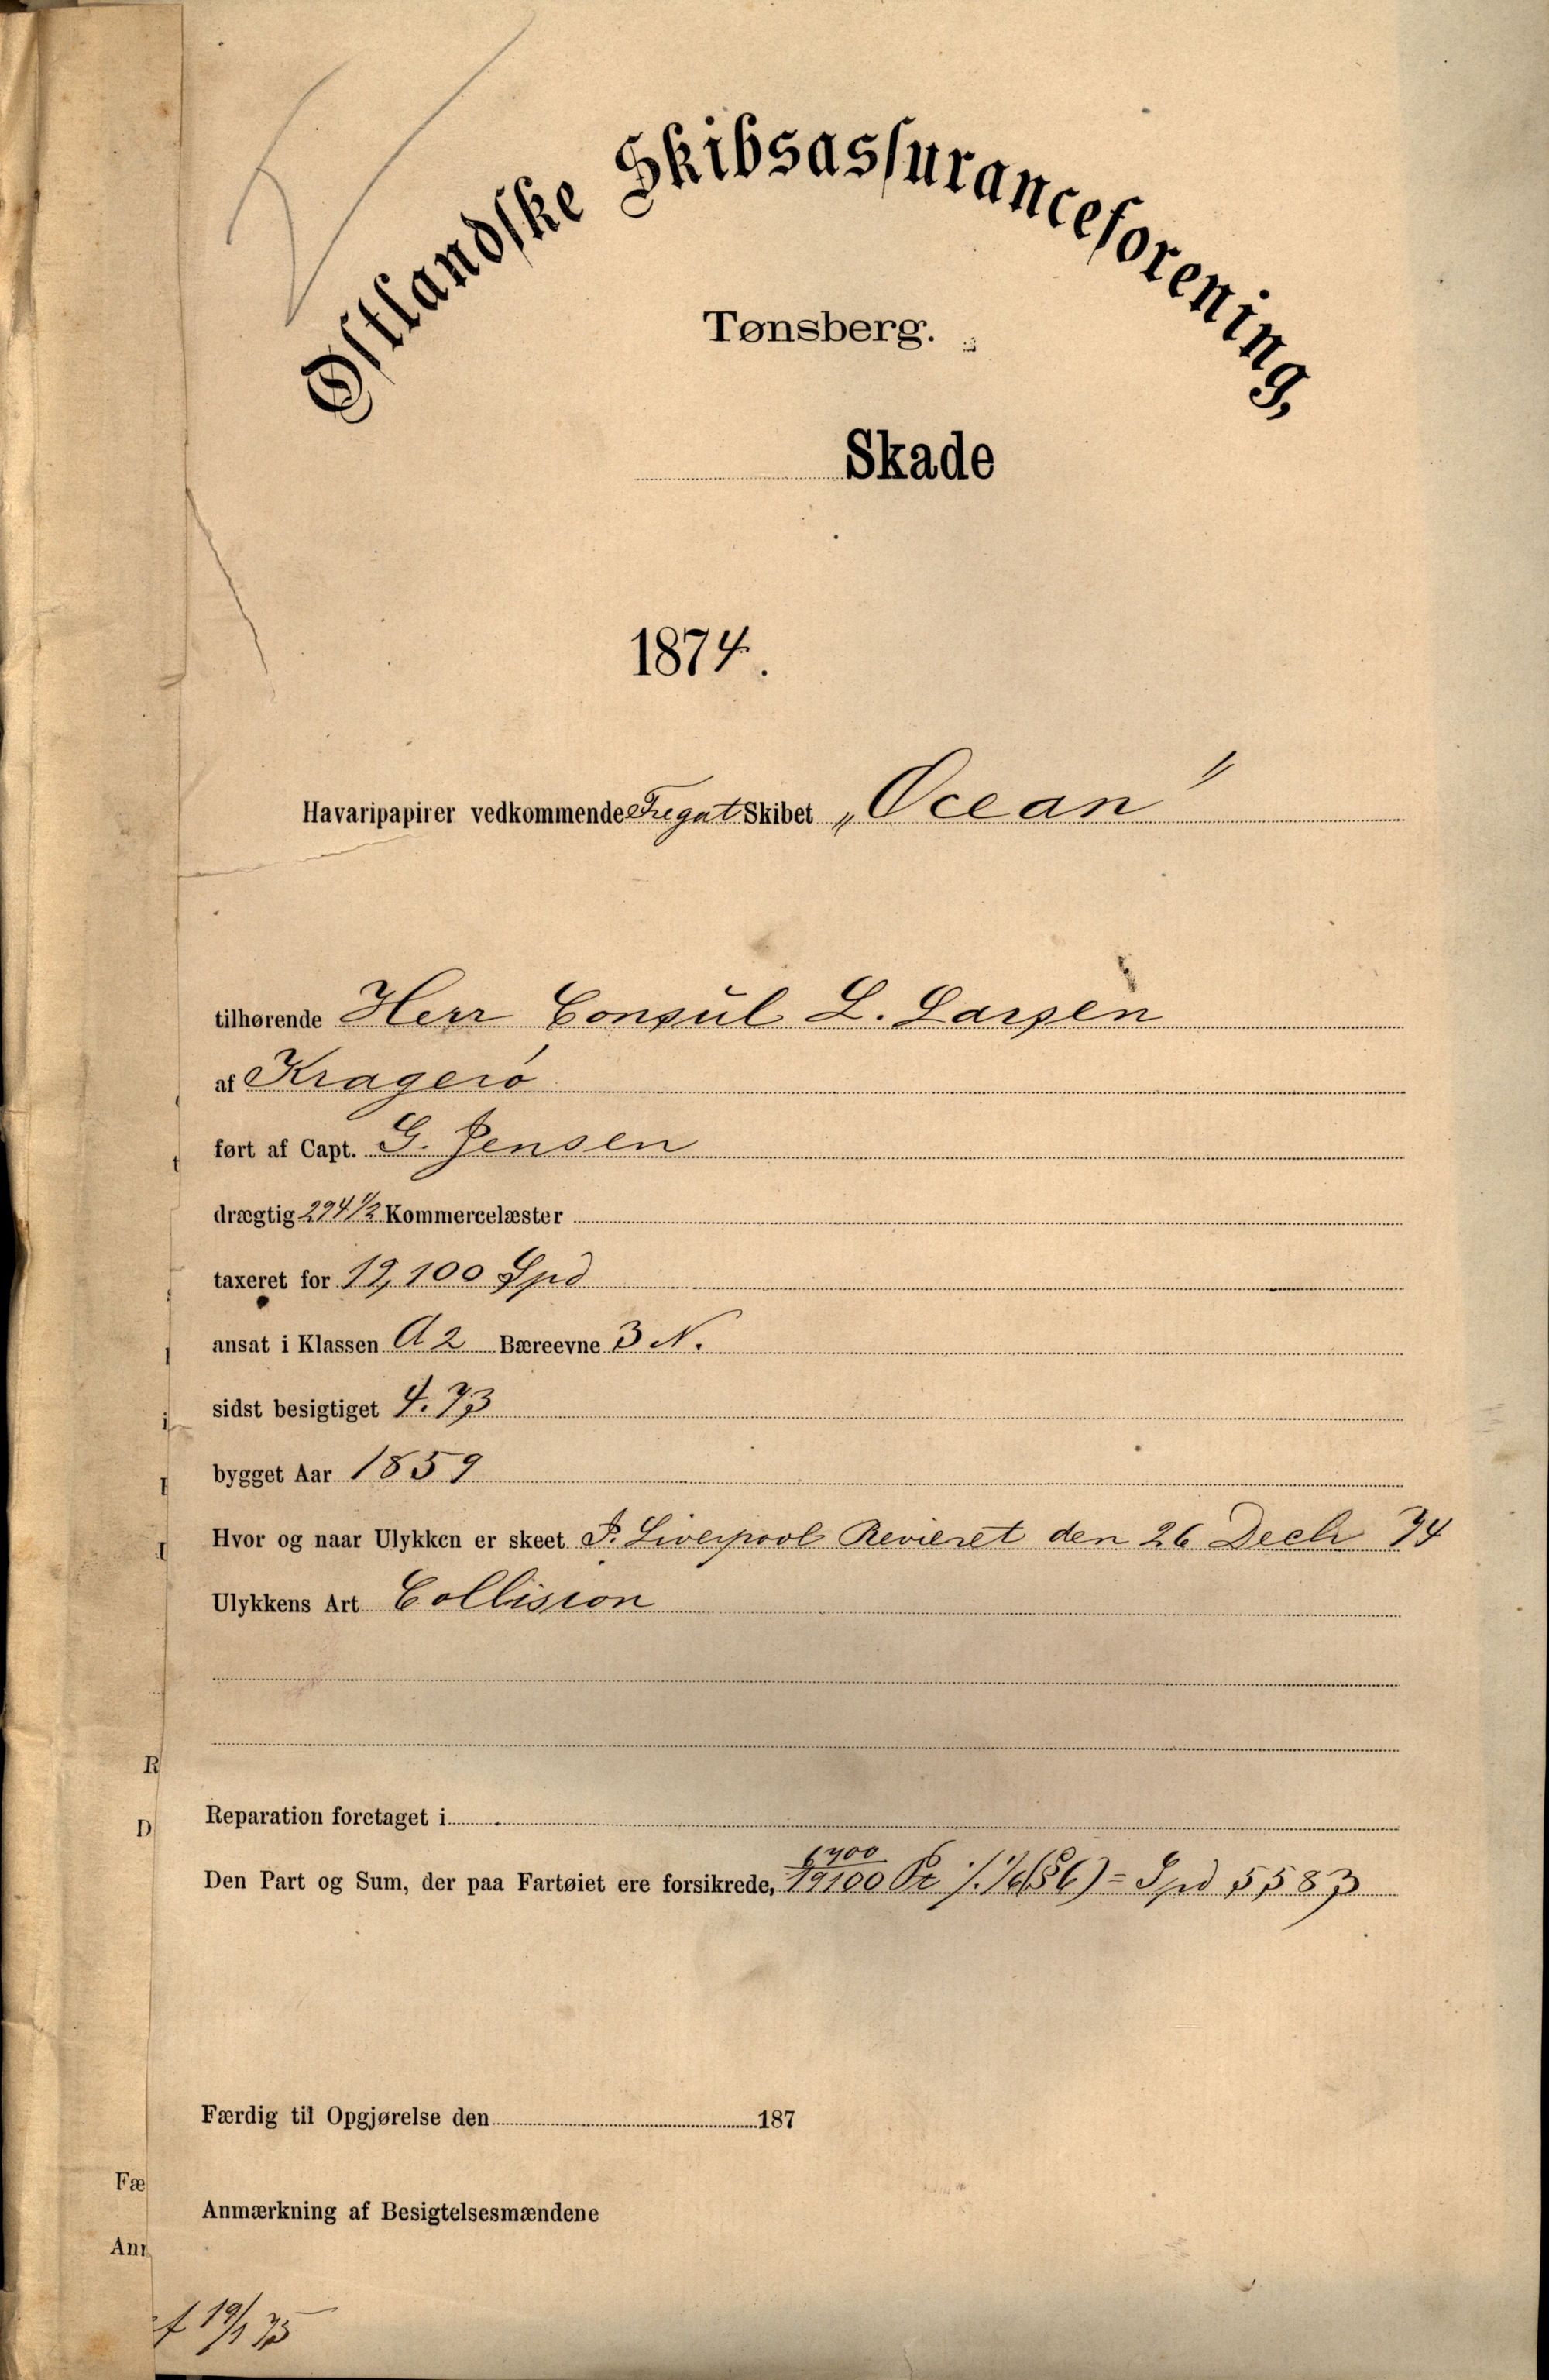 Østlandske Skibsassuranceforening,
Tønsberg.
Skade
1874.
Havaripapirer vedkommende Fregat Skibet „Ocean"
tilhørende Herr Consul L. Larsen
af Kragerø
ført af Capt. G. Jensen
drægtig 294 1/2 Kommercelæster
taxeret for 19,100 Spd
ansat i Klassen A 2 Bæreevne 3 N.
sidst besigtiget 4. 73
bygget Aar 1859
Hvor og naar Ulykken er skeet P. Liverpool Revieret den 26 Decbr 74
Ulykkens Art Collision
Reparation foretaget i
6700
Den Part og Sum, der paa Fartøiet ere forsikrede, 19100 Pt ./. 1/6 (§6) = Spd 5583
Færdig til Opgjørelse den 187
Anmærkning af Besigtelsesmændene
R
D
Fæ
Anr
f 19/1 75